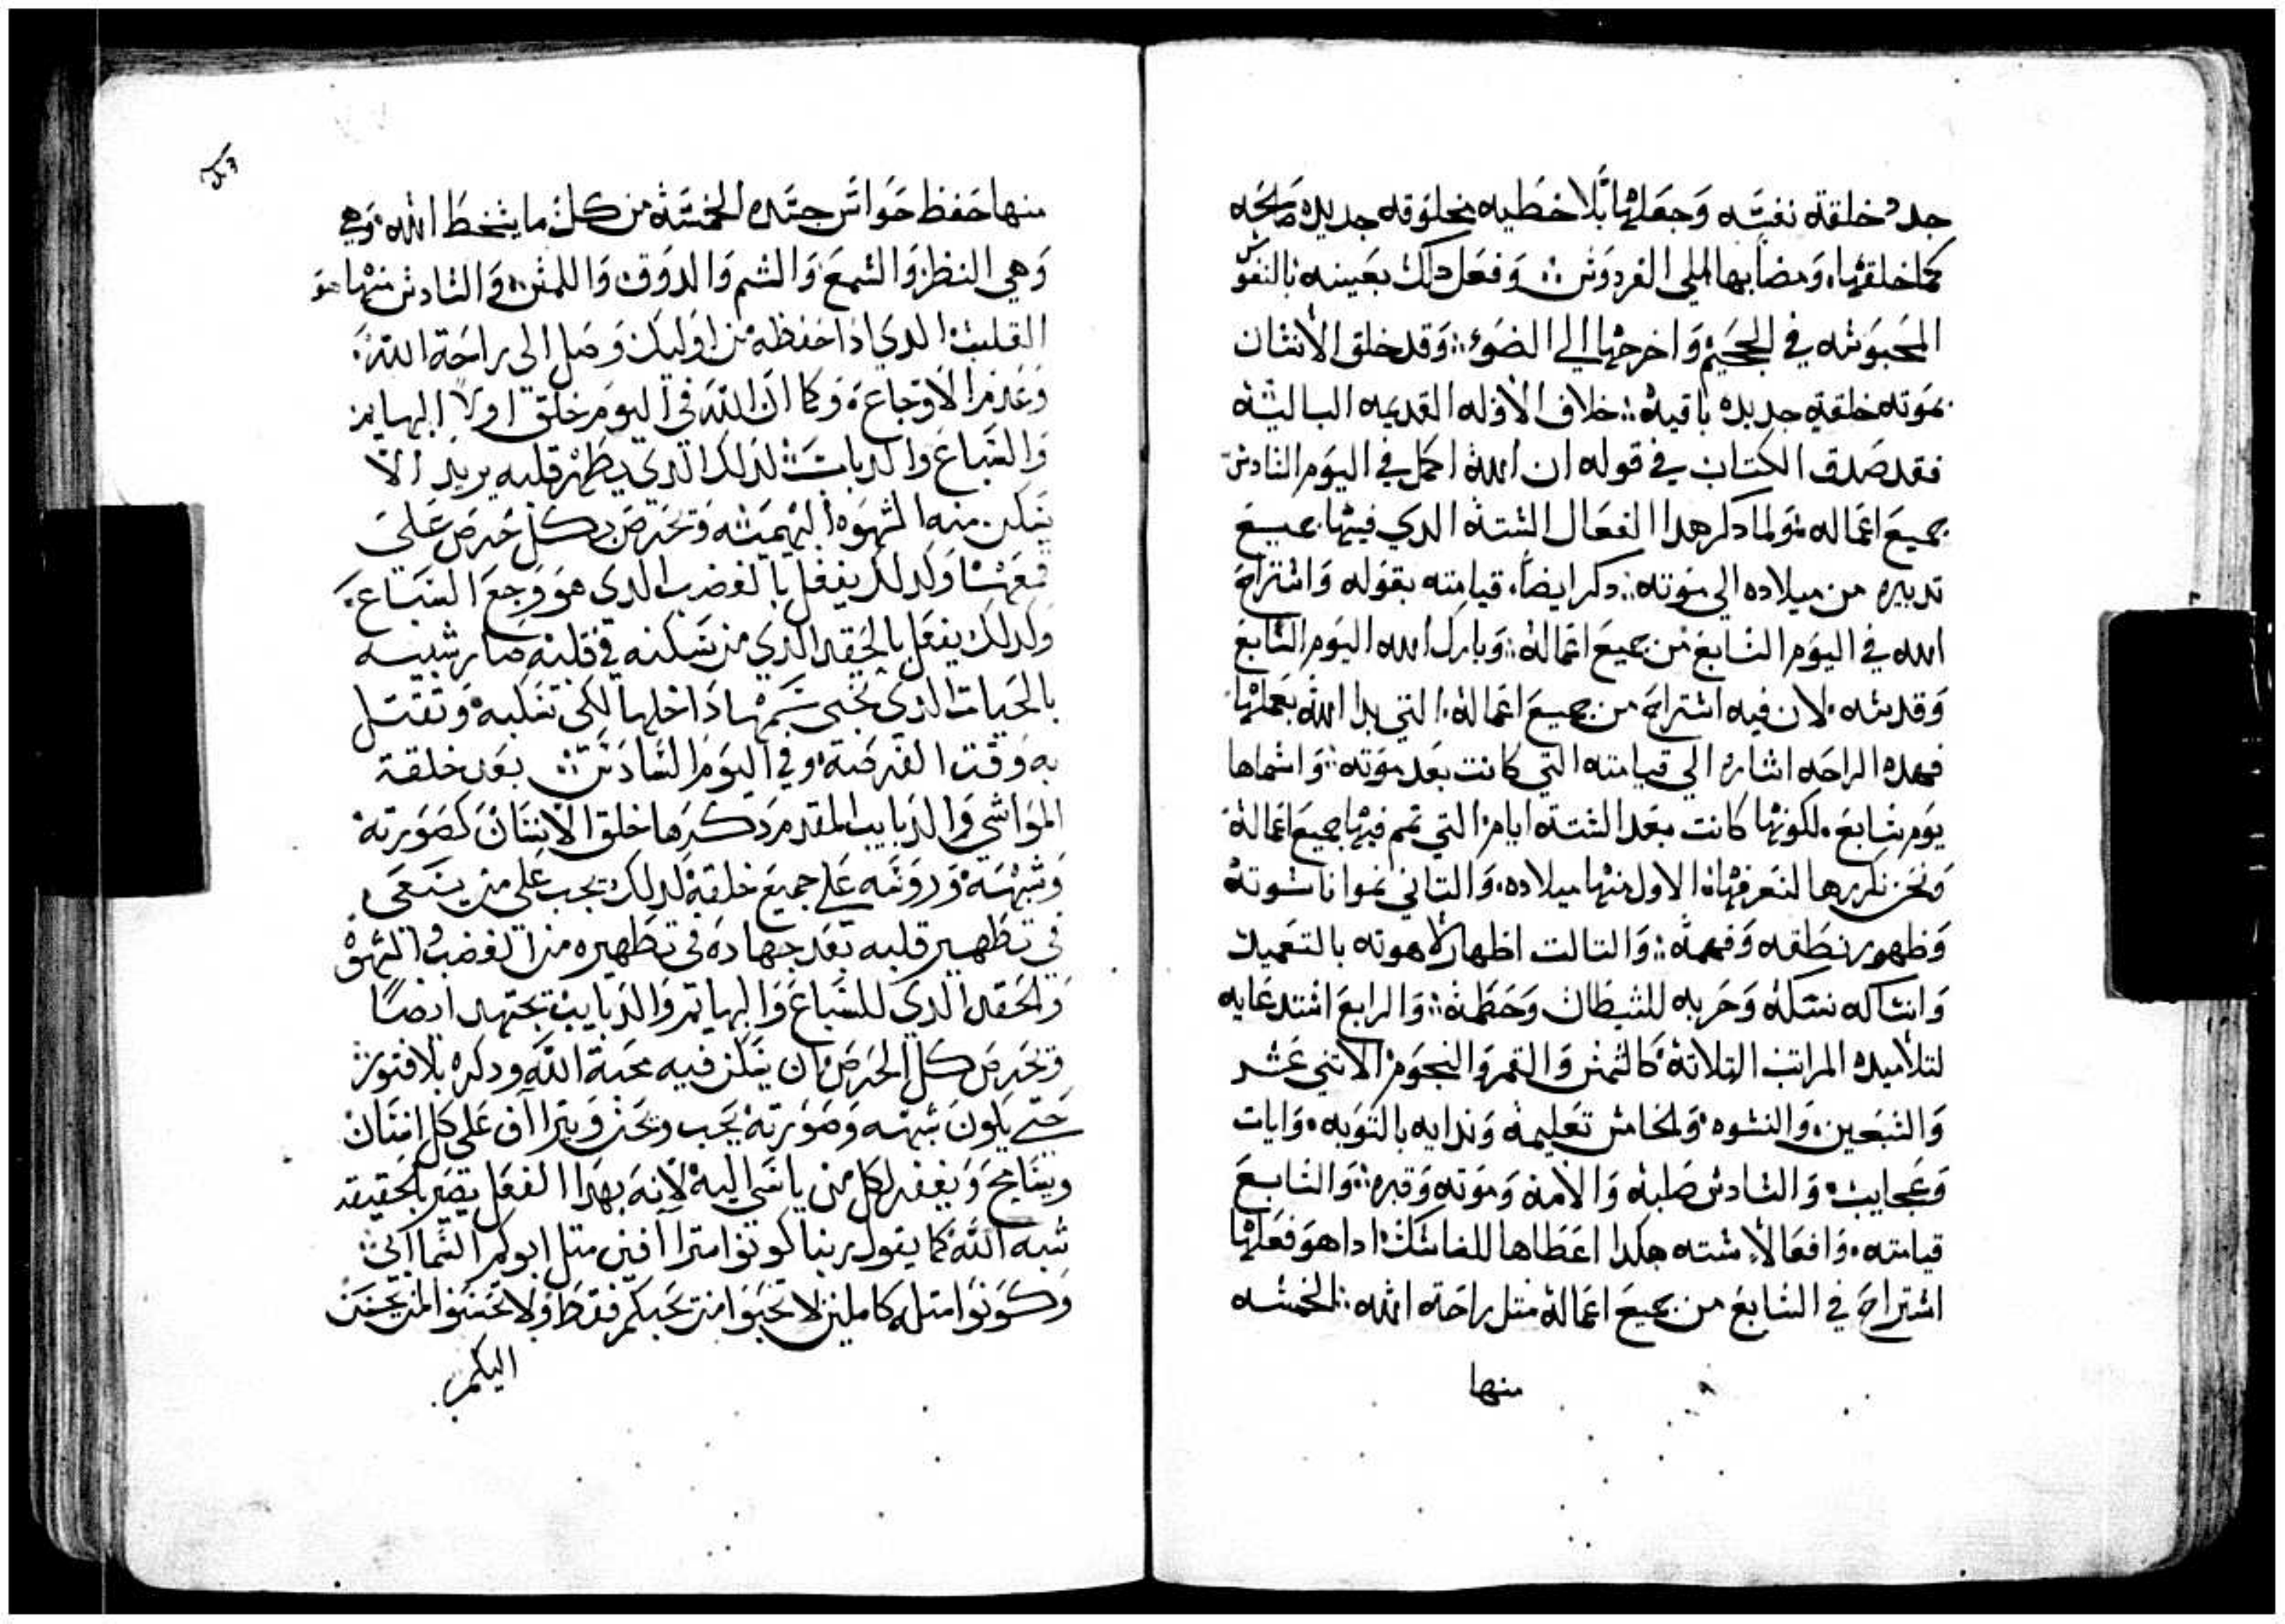 جدد خلقة نفسه وجعلها بلا خطيه مخلوقه جديده صالحه
كما خلقها. ومضا بها الي الفردوس: وفعل دلك بعينه بالنفوس
المحبوسه في الجحيم واخرجها الي الضوء: وقد خلق الانسان
بموته خلقة جديده باقية: خلاف الاوله القديمه الباليه
فقد صدق الكتاب في قوله ان الله اكمل في اليوم السادس
جميع اعماله ولما دكر هدا الفعال الستة الدي فيها جميع
تدبيره من ميلاده الى موته: دكر ايضاً قيامته بقوله واستراح
الله في اليوم السابع من جميع اعماله: وبارك الله اليوم السابع
وقدسه. لان فيه استراح من جميع اعماله التي بدا الله بعملها
فهده الراحه اشاره الي قيامته التي كانت بعد موته: واسماها
يوم سابع. لكونها كانت بعد الستة ايام التي تمم فيها جميع اعماله
ونحن نكررها لنعرفها: الاول منها ميلاده. والتاني نموا ناسوته
وظهور نطقه وفهمه: والتالت اظهار لاهوته بالتعميد
وانساكه نسكه وحربه للشيطان وحطمه: والرابع استدعايه
لتلاميده المراتب التلاتة كالشمس والقمر والنجوم الاتني عشر
والسبعين والنسوه. والخامس تعليمه وندايه بالتوبه. وايات
وعجايب. والسادس صلبه والامه وموته وقبره: والسابع
قيامته. وافعالاً سته هكدا اعطاها للناسك ادا هو فعلها
استراح في السابع من جميع اعماله متل راحة الله: الخمسه
منها
منها حفظ حواس جسده الخمسة من كل ما يسخط الله وهي
وهي النظر والسمع والشم والدوق واللمس: والسادس منها هو
القلب الدي ادا حفظه من اوليك وصل الى راحة الله
وعدم الاوجاع. وكما ان الله في اليوم خلق اولاً البهايم
والسباع والدبابات: لدلك الدي يطهر قلبه يريد الا
يتمكن منه الشهوه البهيميه ويحرص كل حرص على
قمعها ولدلك يفعل بالغضب الدي هو وجع السباع.
ولدلك يفعل بالحقد الدي من سكنه في قلبه صار شبيه
بالحيات الدي تخبى سمها داخلها لكي تنكبه وتقتل
به وقت الفرصة. وفي اليوم السادس: بعد خلقة
المواشي والدبايب المقدم دكرها خلق الانسان كصورته
وشبهه وروسه على جميع خلقة لدلك يجب على من يسعى
في تطهير قلبه بعد جهاده في تطهيره من الغضب والشهوة
والحقد الدي للسباع والبهايم والدبايب يجتهد ايضاً
ويحرص كل الحرص ان يتمكن فيه محبة الله ودكره بلا فتور
حتى يكون شبهه وصورته يحب ويحن ويتراآف على كل انسان
ويسامح ويغفر لكل من ياسي اليه لانه بهدا الفعل يصير بالحقيقه
شبه الله كما يقول ربنا كونوا متراآفين متل ابوكم السماآى:
وكونوا متله كاملين لا تحبوا من يحبكم فقط ولا تحسنوا لمن يحسن
اليكم